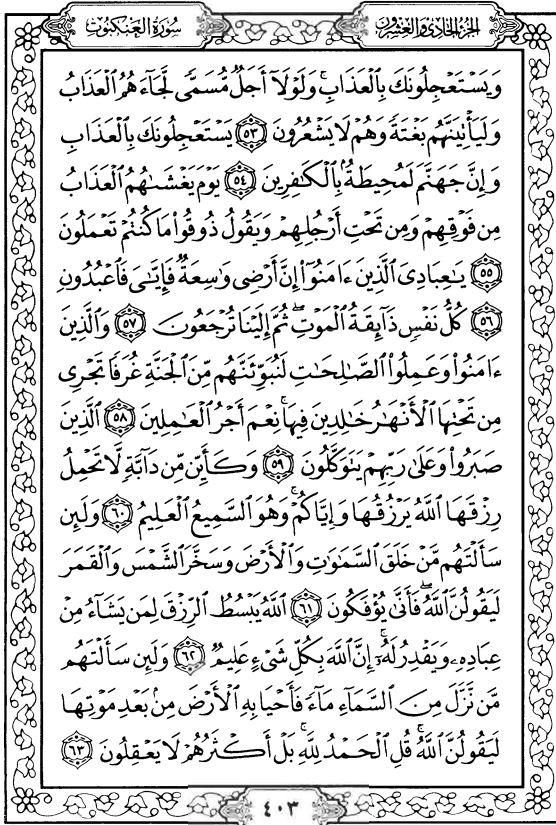 الجزء الحادي والعشرون
سورة العنكبوت
وَيَسْتَعْجِلُونَكَ بِٱلْعَذَابِ ۚ وَلَوْلَآ أَجَلٌ مُّسَمًّى لَّجَآءَهُمُ ٱلْعَذَابُ
وَلَيَأْتِيَنَّهُم بَغْتَةً وَهُمْ لَا يَشْعُرُونَ ٥٣ يَسْتَعْجِلُونَكَ بِٱلْعَذَابِ
وَإِنَّ جَهَنَّمَ لَمُحِيطَةٌۢ بِٱلْكَـٰفِرِينَ ٥٤ يَوْمَ يَغْشَىٰهُمُ ٱلْعَذَابُ
مِن فَوْقِهِمْ وَمِن تَحْتِ أَرْجُلِهِمْ وَيَقُولُ ذُوقُوا۟ مَا كُنتُمْ تَعْمَلُونَ
٥٥ يَـٰعِبَادِىَ ٱلَّذِينَ ءَامَنُوٓا۟ إِنَّ أَرْضِى وَٰسِعَةٌ فَإِيَّـٰىَ فَٱعْبُدُونِ
٥٦ كُلُّ نَفْسٍ ذَآئِقَةُ ٱلْمَوْتِ ۖ ثُمَّ إِلَيْنَا تُرْجَعُونَ ٥٧ وَٱلَّذِينَ
ءَامَنُوا۟ وَعَمِلُوا۟ ٱلصَّـٰلِحَـٰتِ لَنُبَوِّئَنَّهُم مِّنَ ٱلْجَنَّةِ غُرَفًا تَجْرِى
مِن تَحْتِهَا ٱلْأَنْهَـٰرُ خَـٰلِدِينَ فِيهَا ۚ نِعْمَ أَجْرُ ٱلْعَـٰمِلِينَ ٥٨ ٱلَّذِينَ
صَبَرُوا۟ وَعَلَىٰ رَبِّهِمْ يَتَوَكَّلُونَ ٥٩ وَكَأَيِّن مِّن دَآبَّةٍ لَّا تَحْمِلُ
رِزْقَهَا ٱللَّهُ يَرْزُقُهَا وَإِيَّاكُمْ ۚ وَهُوَ ٱلسَّمِيعُ ٱلْعَلِيمُ ٦٠ وَلَئِن
سَأَلْتَهُم مَّنْ خَلَقَ ٱلسَّمَـٰوَٰتِ وَٱلْأَرْضَ وَسَخَّرَ ٱلشَّمْسَ وَٱلْقَمَرَ
لَيَقُولُنَّ ٱللَّهُ ۖ فَأَنَّىٰ يُؤْفَكُونَ ٦١ ٱللَّهُ يَبْسُطُ ٱلرِّزْقَ لِمَن يَشَآءُ مِنْ
عِبَادِهِۦ وَيَقْدِرُ لَهُۥٓ ۚ إِنَّ ٱللَّهَ بِكُلِّ شَىْءٍ عَلِيمٌ ٦٢ وَلَئِن سَأَلْتَهُم
مَّن نَّزَّلَ مِنَ ٱلسَّمَآءِ مَآءً فَأَحْيَا بِهِ ٱلْأَرْضَ مِنۢ بَعْدِ مَوْتِهَا
لَيَقُولُنَّ ٱللَّهُ ۚ قُلِ ٱلْحَمْدُ لِلَّهِ ۚ بَلْ أَكْثَرُهُمْ لَا يَعْقِلُونَ ٦٣
٤٠٣